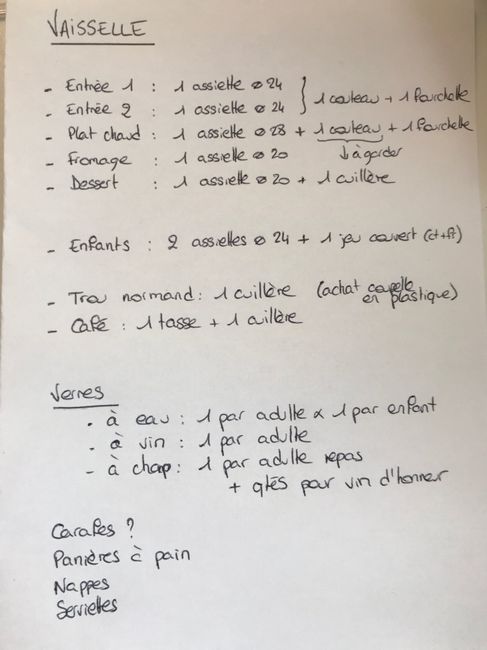 VAISSELLE
- Entrée 1 : 1 assiette ø 24
- Entrée 2 : 1 assiette ø 24 } 1 couteau + 1 fourchette
- Plat chaud : 1 assiette ø 28 + 1 couteau + 1 fourchette
- Fromage : 1 assiette ø 20 ↓ à garder
- Dessert : 1 assiette ø 20 + 1 cuillère
- Enfants : 2 assiettes ø 24 + 1 jeu couvert (ct+ft)
- Trou normand : 1 cuillère (achat coupelle en plastique)
- Café : 1 tasse + 1 cuillère
Verres
- à eau : 1 par adulte & 1 par enfant
- à vin : 1 par adulte
- à champ : 1 par adulte repas
+ qtés pour vin d'honner
Carafes ?
Panières à pain
Nappes
Serviettes